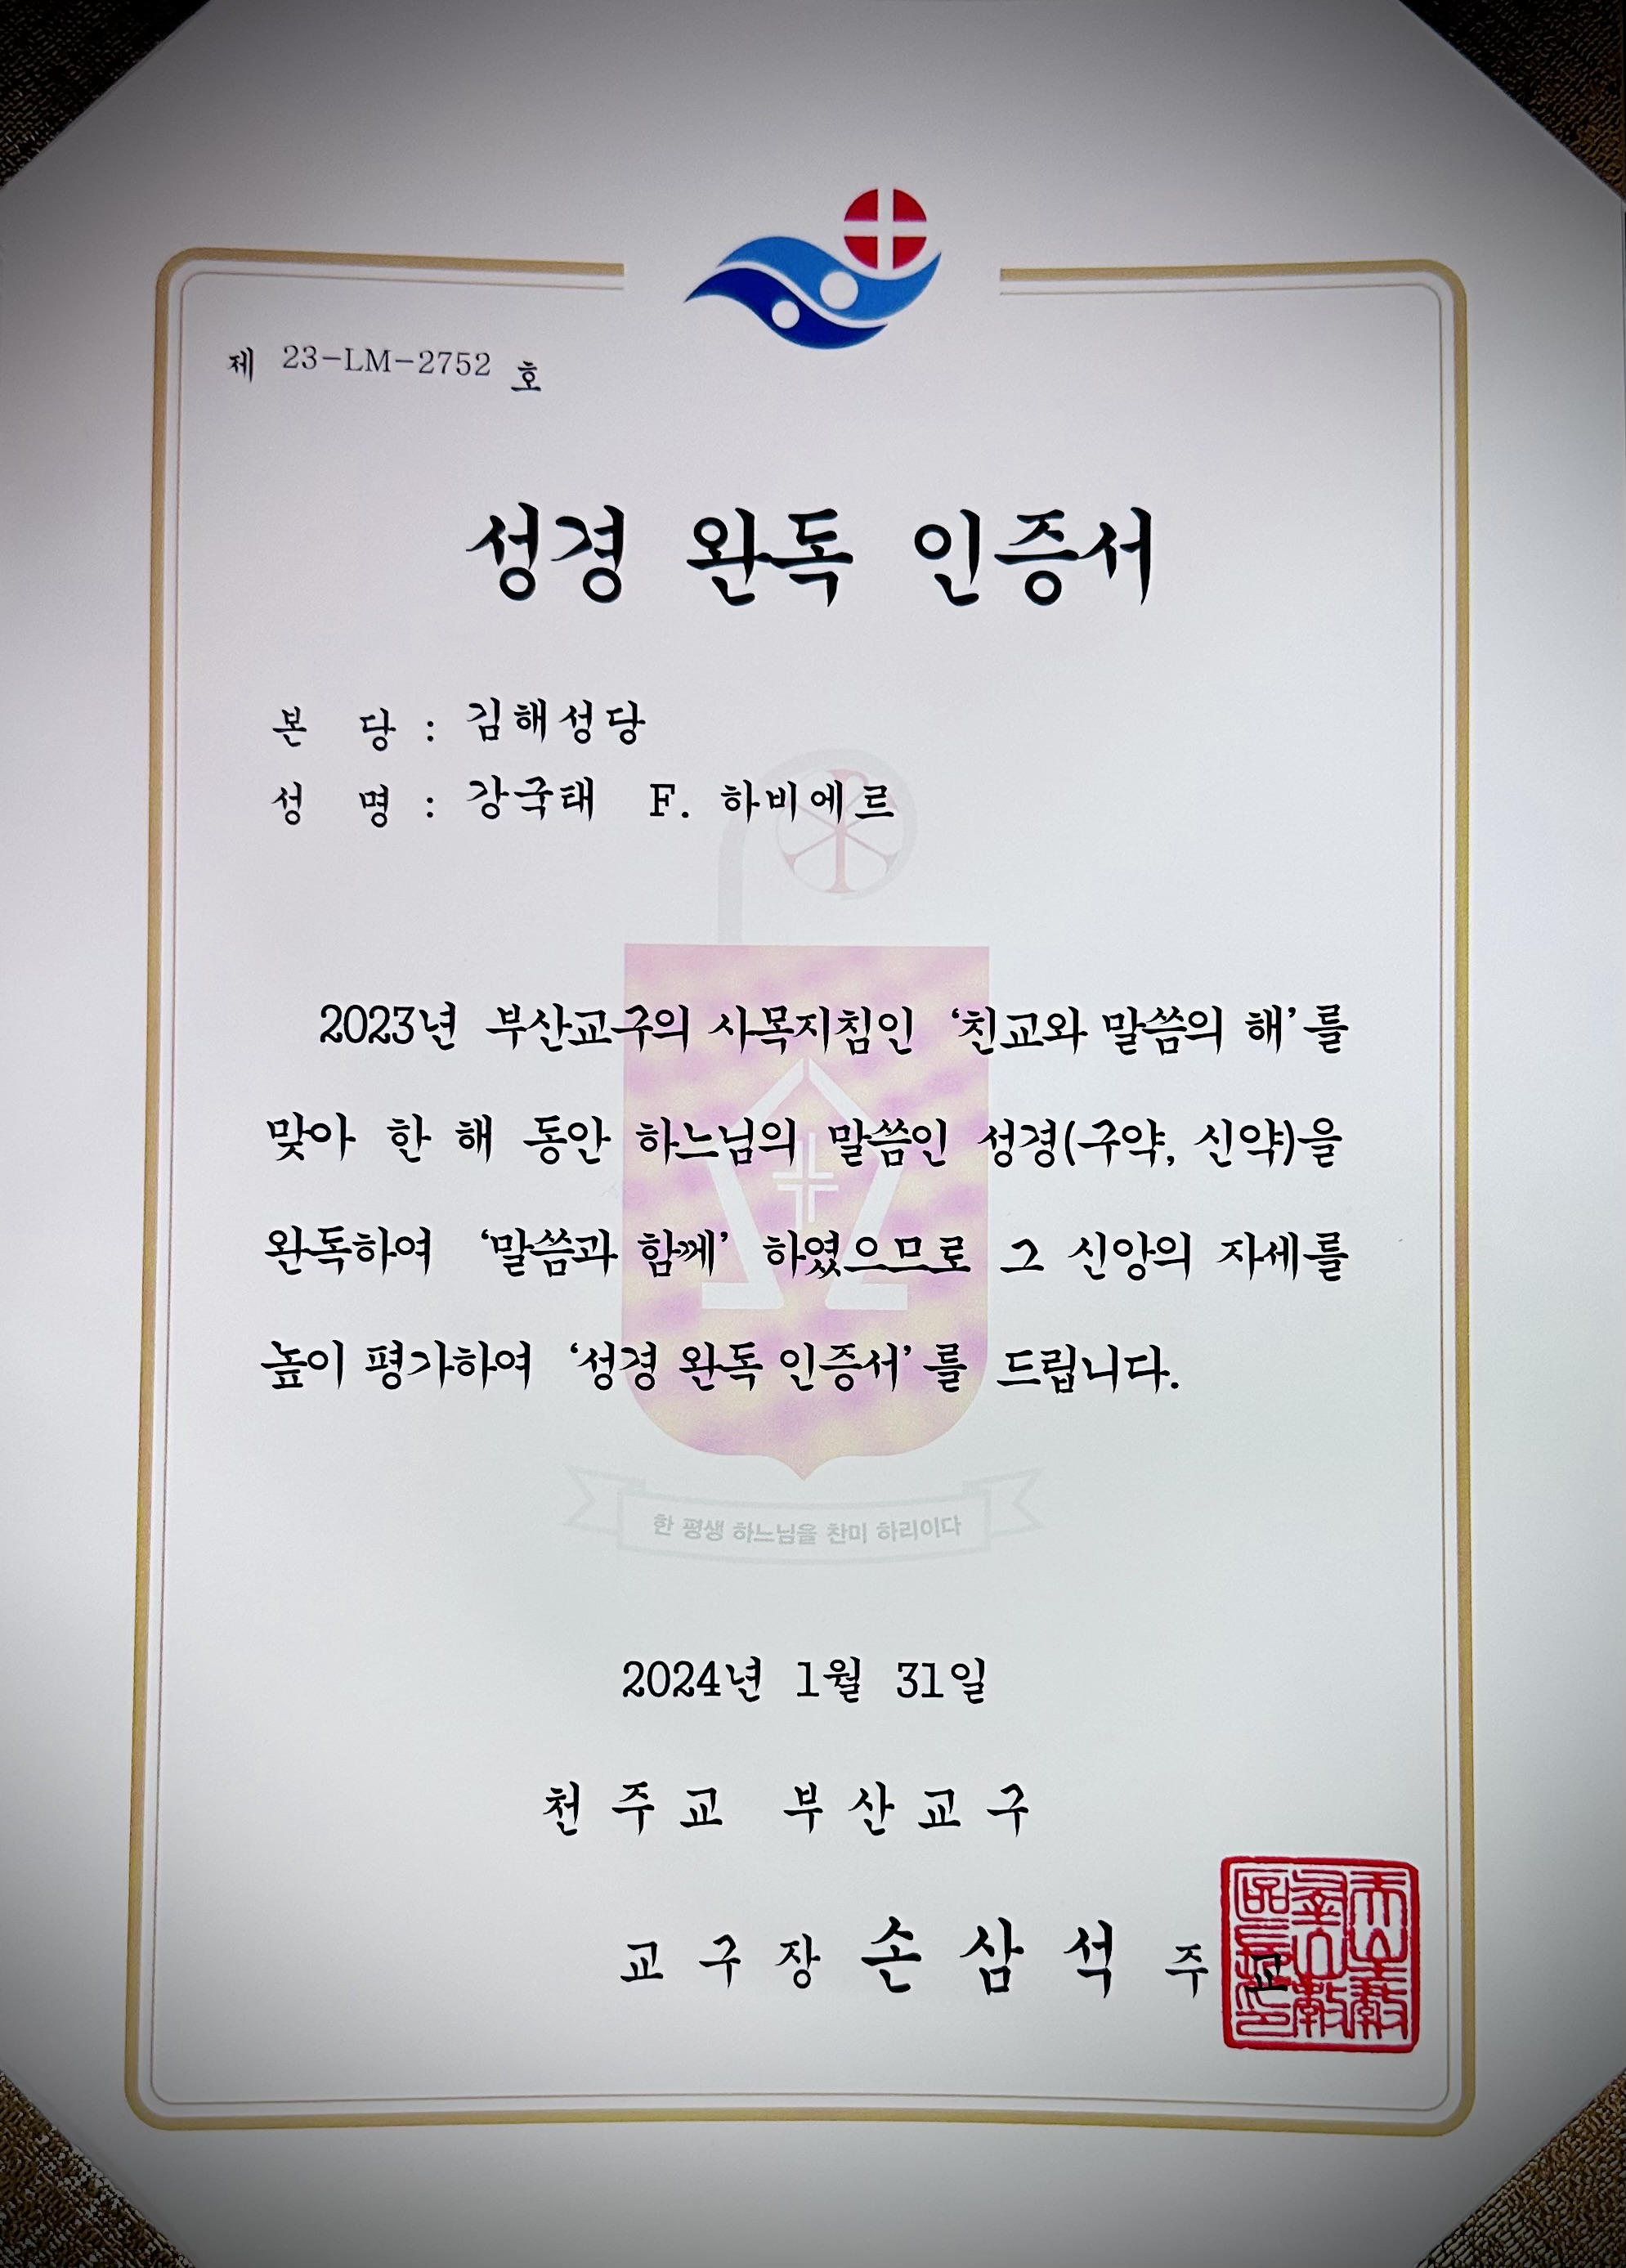 제 23-LM-2752 호
성경 완독 인증서
본 당 : 김해성당
성 명 : 강국태 F. 하비에르
2023년 부산교구의 사목지침인 ‘친교와 말씀의 해’를
맞아 한 해 동안 하느님의 말씀인 성경(구약, 신약)을
완독하여 ‘말씀과 함께’ 하였으므로 그 신앙의 자세를
높이 평가하여 ‘성경 완독 인증서’를 드립니다.
한 평생 하느님을 찬미 하리이다
2024년 1월 31일
천주교 부산교구
교구장 손삼석 주교